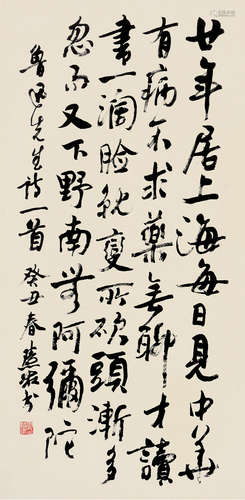 廿年居上海每日見中華
有病不求藥無聊才讀
書一濶臉就變所砍頭漸多
忽而又下野南無阿彌陀
魯迅先生詩一首 癸丑春